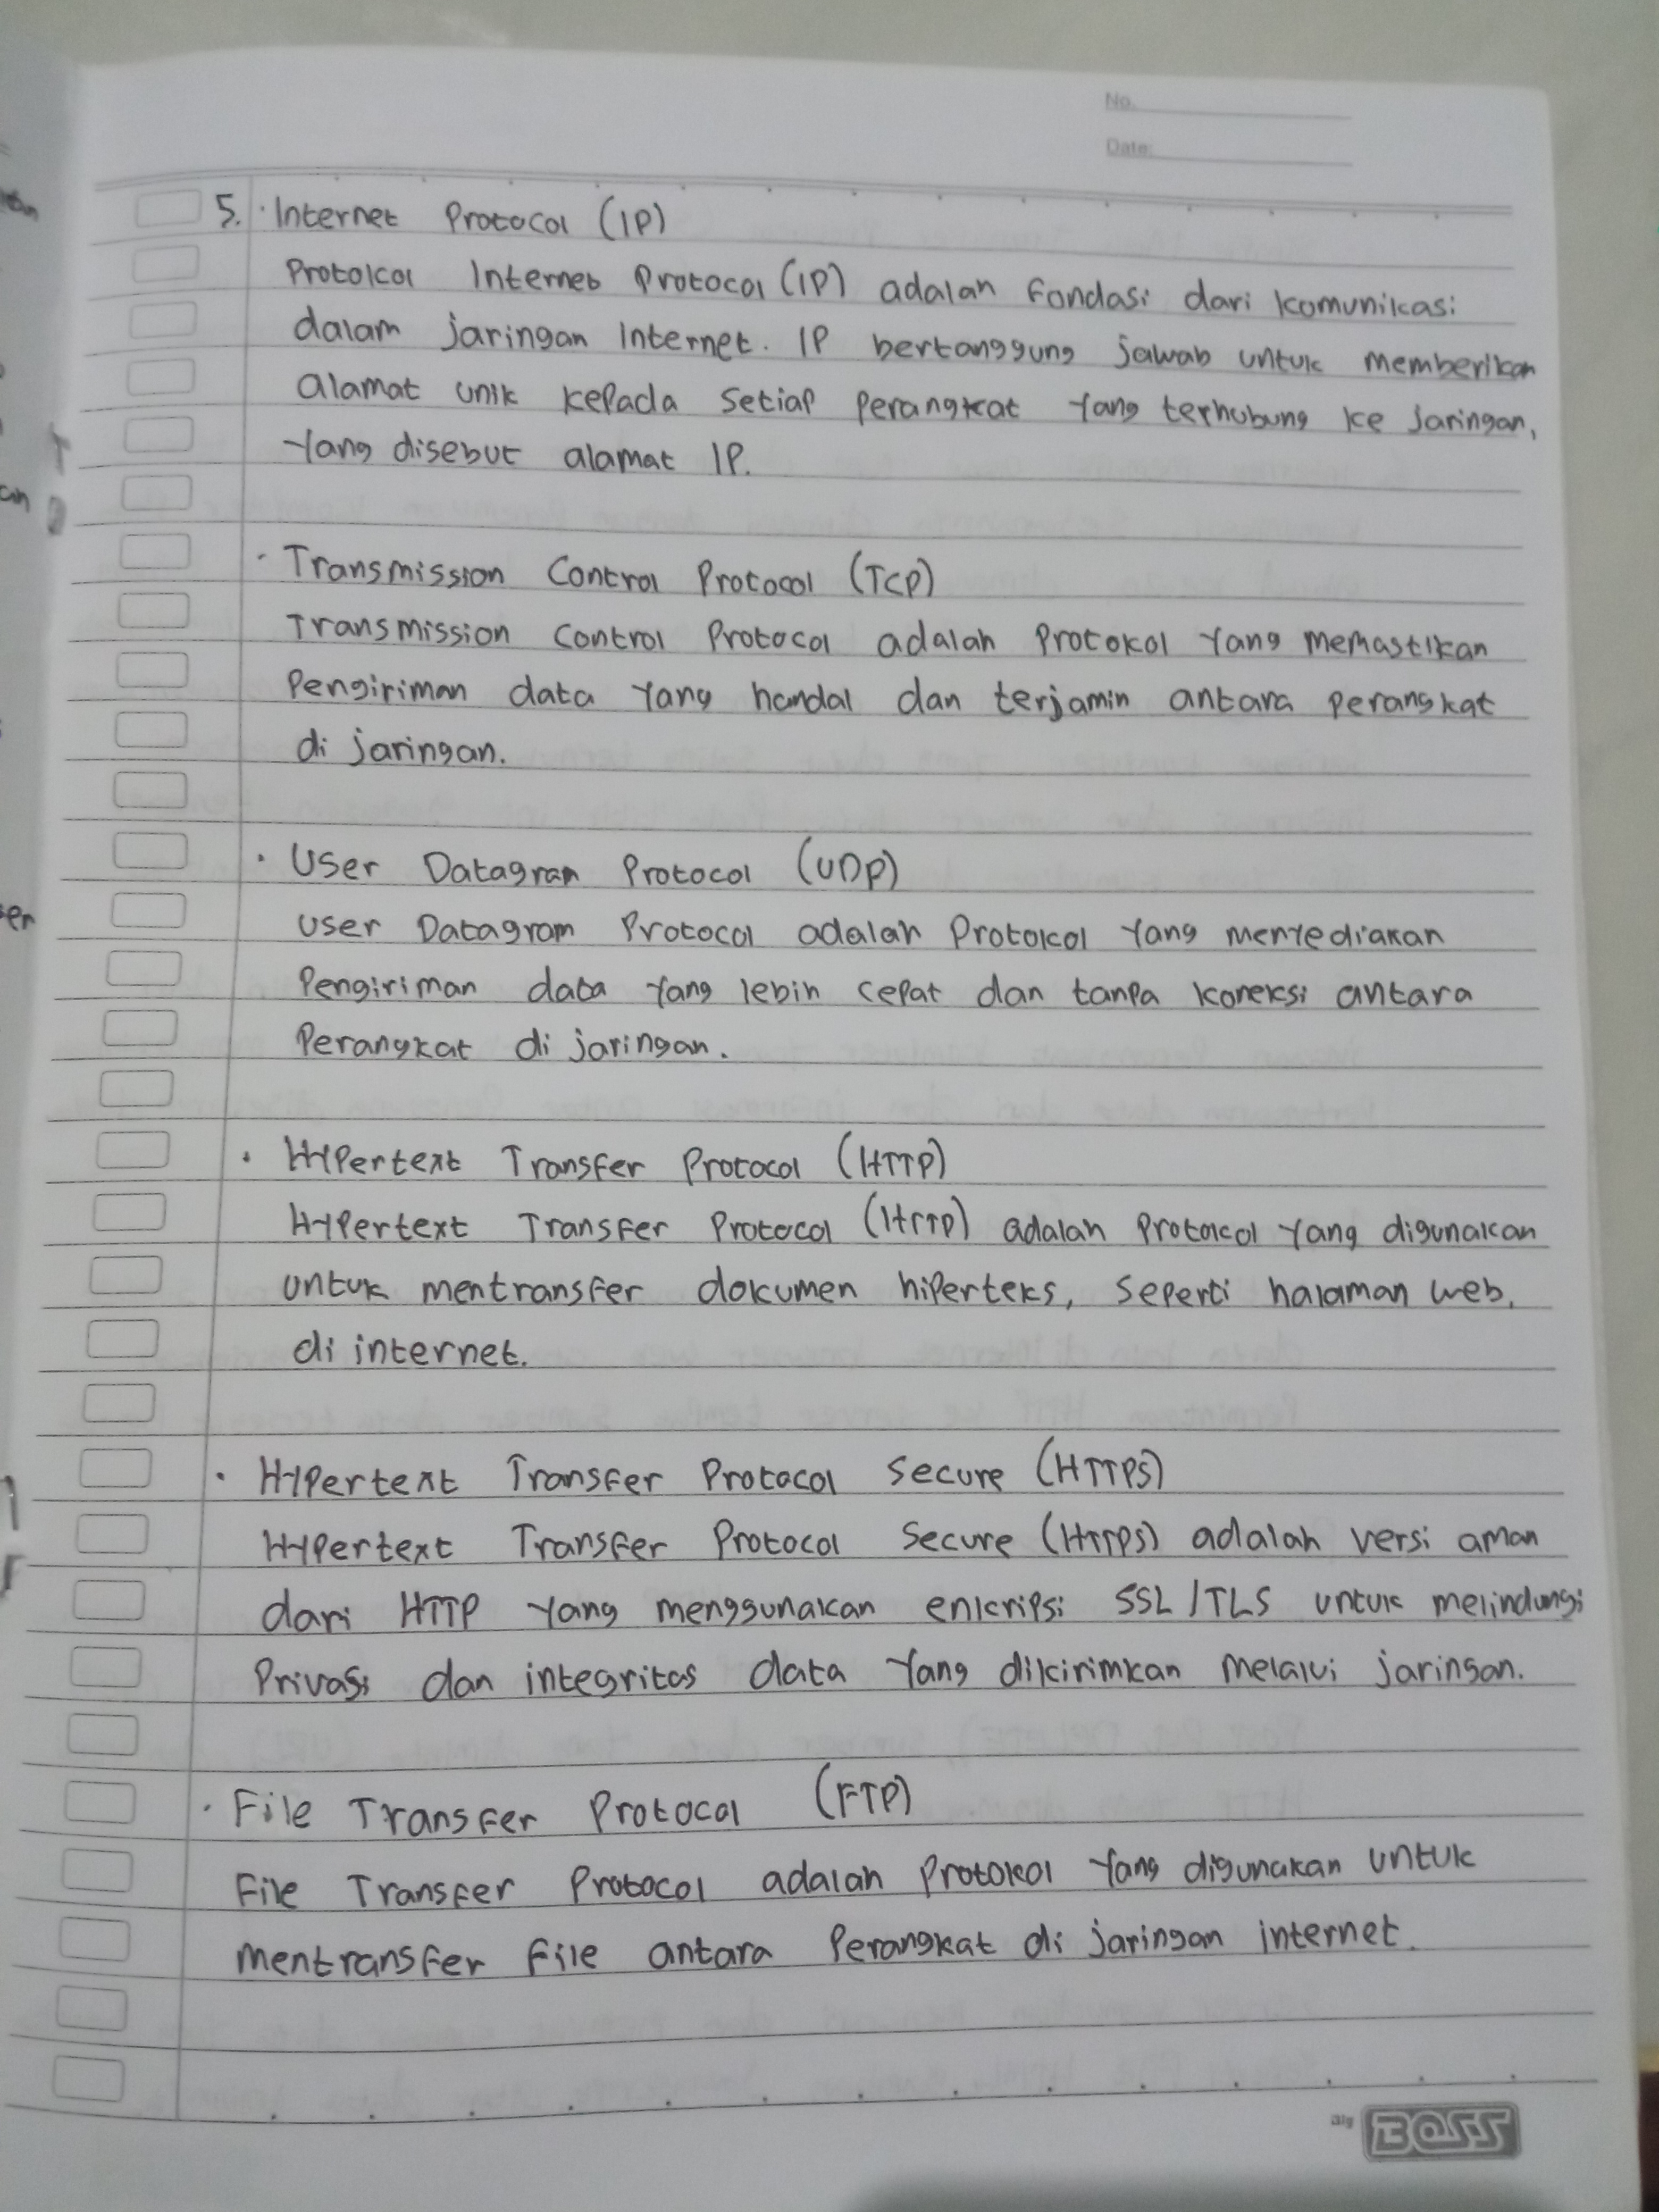 No.
Date:
5. · Internet Protocol (IP)
Protokol Internet Protocol (IP) adalah fondasi dari komunikasi
dalam jaringan Internet. IP bertanggung jawab untuk memberikan
alamat unik kepada setiap perangkat yang terhubung ke jaringan,
yang disebut alamat IP.
· Transmission Control Protocol (TCP)
Transmission Control Protocol adalah protokol yang memastikan
Pengiriman data yang handal dan terjamin antara perangkat
di jaringan.
· User Datagram Protocol (UDP)
User Datagram Protocol adalah Protokol yang menyediakan
Pengiriman data yang lebih cepat dan tanpa koneksi antara
Perangkat di jaringan.
· Hypertext Transfer Protocol (HTTP)
Hypertext Transfer Protocol (HTTP) adalah Protokol yang digunakan
untuk mentransfer dokumen hiperteks, seperti halaman web,
di internet.
· Hypertext Transfer Protocol Secure (HTTPS)
Hypertext Transfer Protocol Secure (HTTPS) adalah versi aman
dari HTTP yang menggunakan enkripsi SSL/TLS untuk melindungi
Privasi dan integritas data yang dikirimkan melalui jaringan.
· File Transfer Protocol (FTP)
File Transfer Protocol adalah Protokol yang digunakan untuk
mentransfer file antara Perangkat di jaringan internet.
Big BOSS